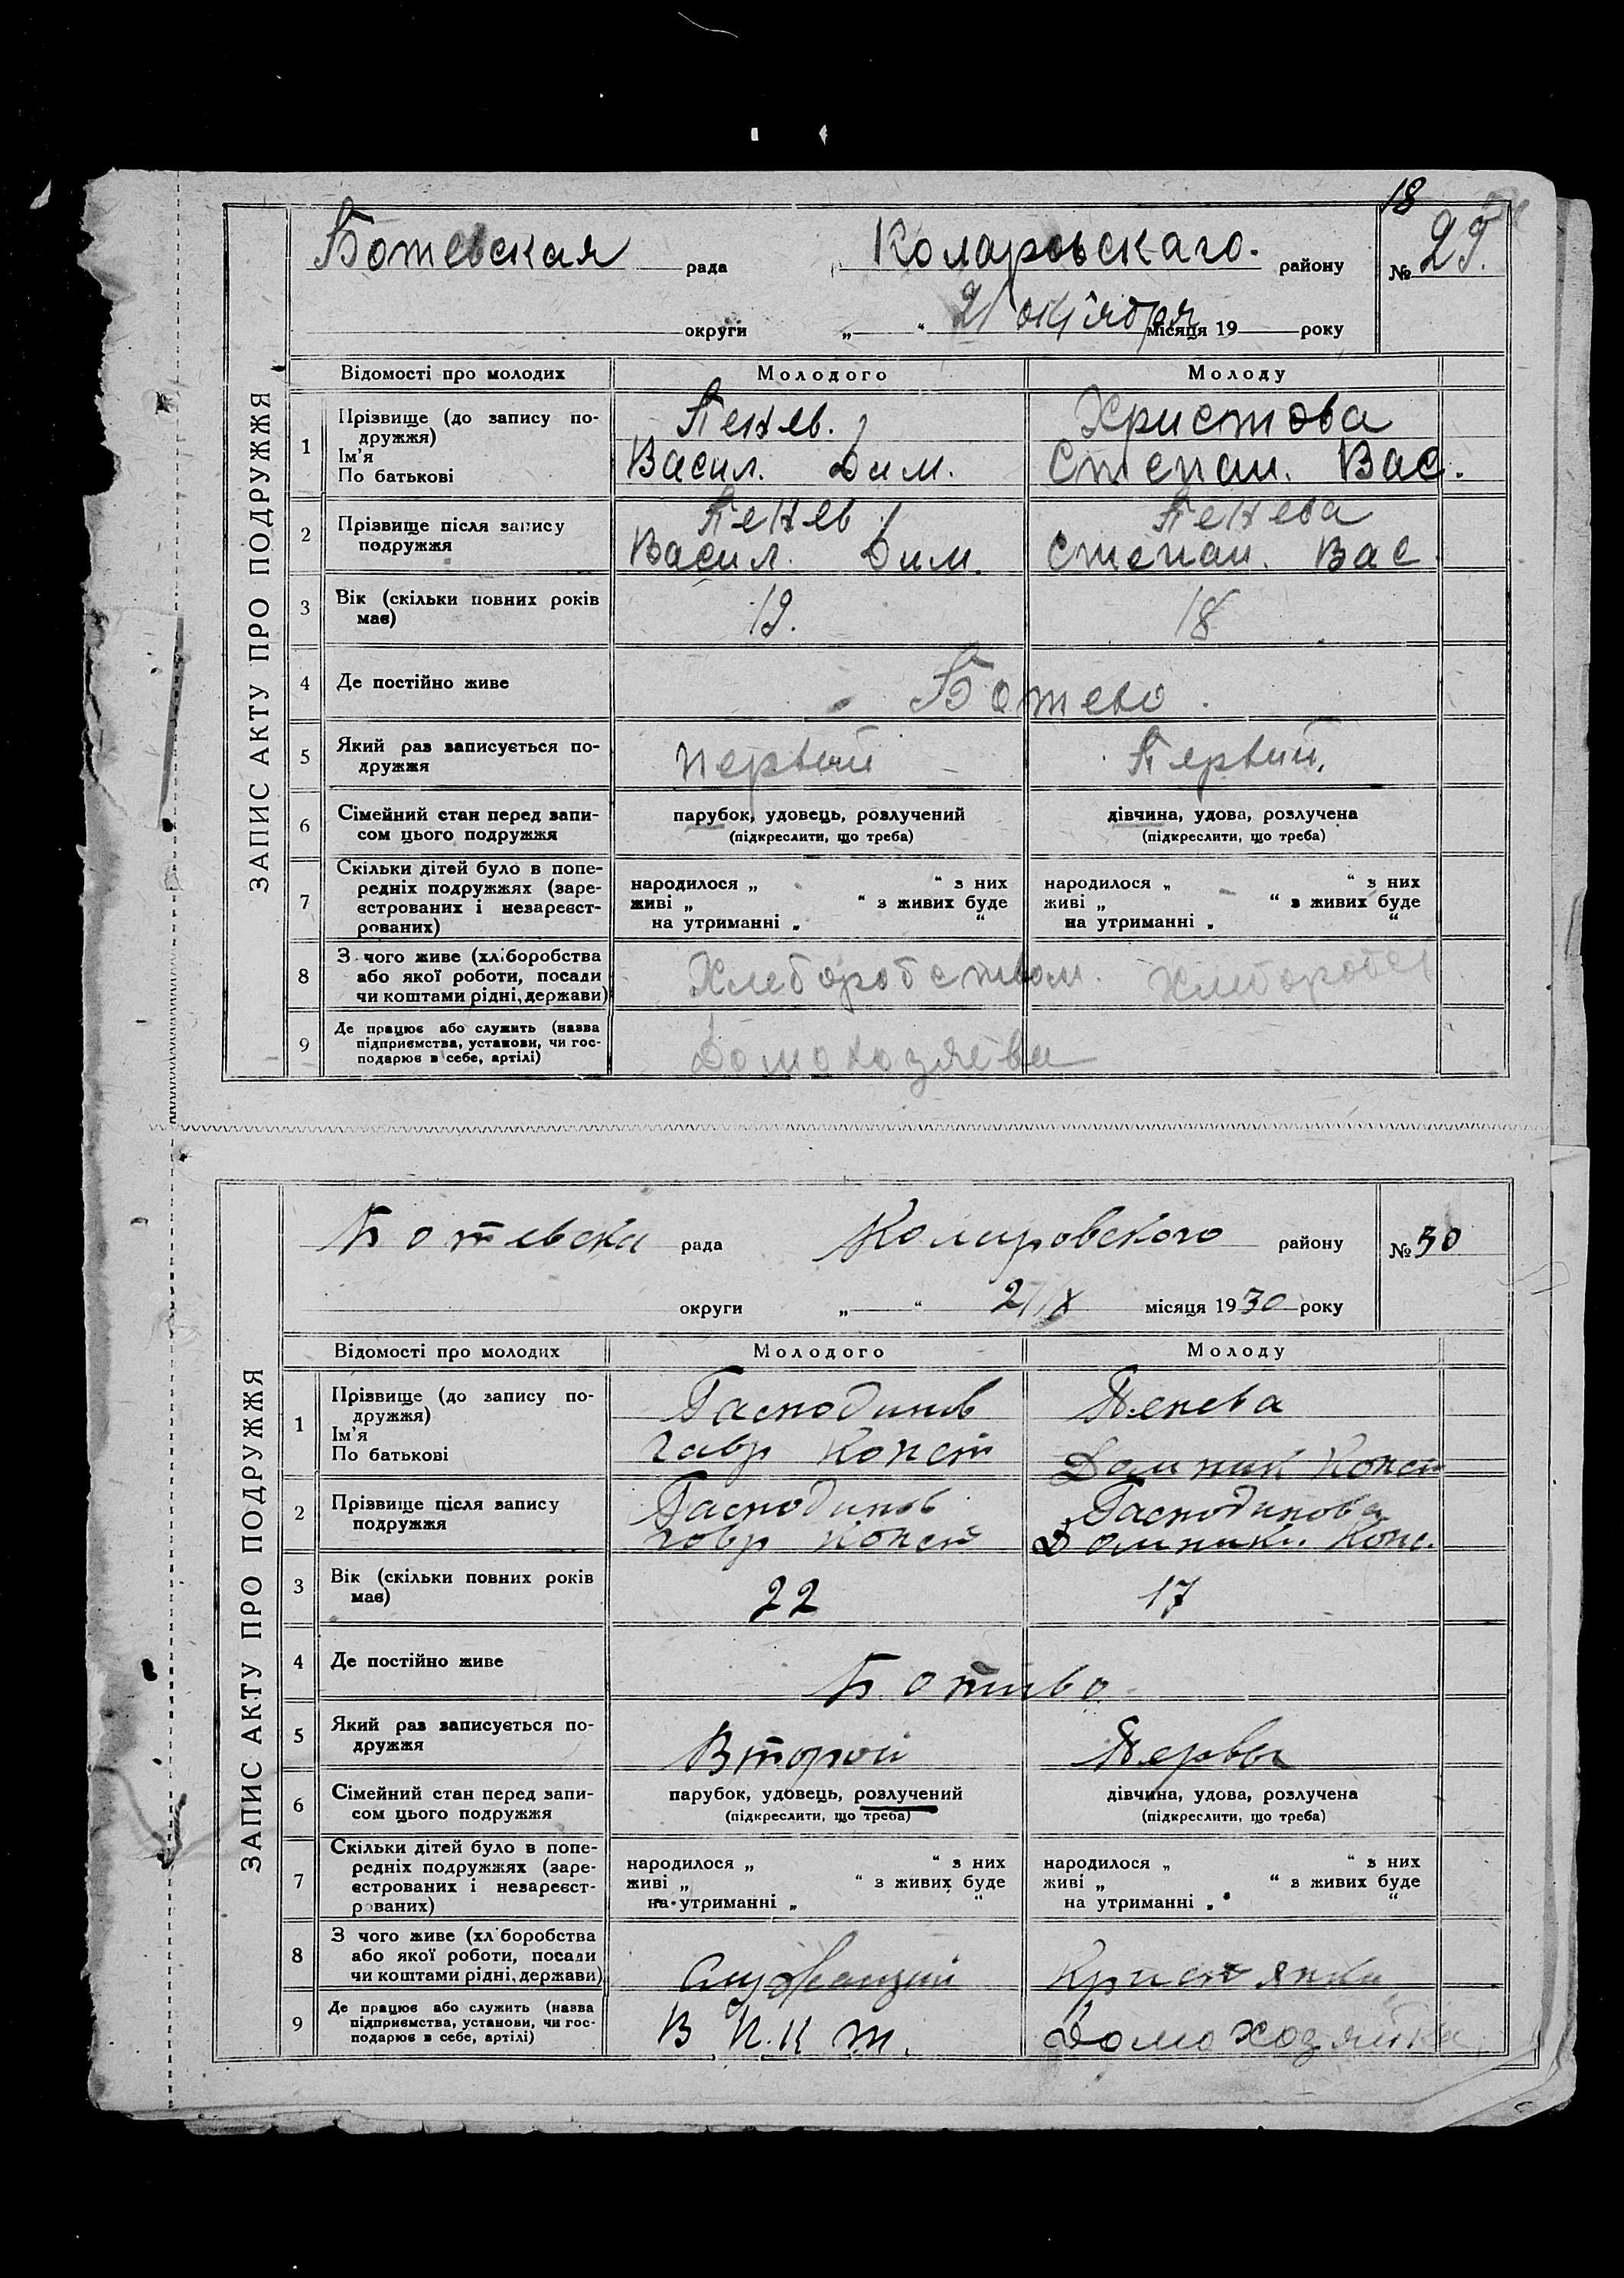 18
ЗАПИС АКТУ ПРО ПОДРУЖЖЯ
Ботевская рада Коларовскаго. району № 29.
округи „ “ 21 октября місяця 19 року
Відомості про молодих Молодого Молоду
1 Прізвище (до запису по-
дружжя)
Ім’я
По батькові
Пенев. Христова
Васил. Дим. Степан. Вас.
2 Прізвище після запису
подружжя
Пенев Пенева
Васил. Дим. Степан. Вас
3 Вік (скільки повних років
має)
19. 18
4 Де постійно живе Ботево.
5 Який раз записується по-
дружжя
первый Первый.
6 Сімейний стан перед запи-
сом цього подружжя
парубок, удовець, розлучений дівчина, удова, розлучена
(підкреслити, що треба) (підкреслити, що треба)
7 Скільки дітей було в попе-
редніх подружжях (заре-
єстрованих і незареєст-
рованих)
народилося „ “ з них народилося „ “ з них
живі „ “ з живих буде живі „ “ з живих буде
на утриманні „ “ на утриманні „ “
8 З чого живе (хліборобства
або якої роботи, посади
чи коштами рідні, держави)
Хлеборобством.
9 Де працює або служить (назва
підприємства, установи, чи гос-
подарює в себе, артілі)
ЗАПИС АКТУ ПРО ПОДРУЖЖЯ
Ботевска рада Коларовского району № 30
округи „ “ місяця 1930 року
Відомості про молодих Молодого Молоду
1 Прізвище (до запису по-
дружжя)
Ім’я
По батькові
Гасподинов Пенева
Гавр Конст Домник Конст
2 Прізвище після запису
подружжя
Гасподинов Гасподинова
Гавр Конст Домник. Конс.
3 Вік (скільки повних років
має)
22 17
4 Де постійно живе Ботево
5 Який раз записується по-
дружжя
Второй Первы
6 Сімейний стан перед запи-
сом цього подружжя
парубок, удовець, розлучений дівчина, удова, розлучена
(підкреслити, що треба) (підкреслити, що треба)
7 Скільки дітей було в попе-
редніх подружжях (заре-
єстрованих і незареєст-
рованих)
народилося „ “ з них народилося „ “ з них
живі „ “ з живих буде живі „ “ з живих буде
на утриманні „ “ на утриманні „ “
8 З чого живе (хліборобства
або якої роботи, посади
чи коштами рідні, держави)
Служащий Кристянка
9 Де працює або служить (назва
підприємства, установи, чи гос-
подарює в себе, артілі)
Домохозяйка